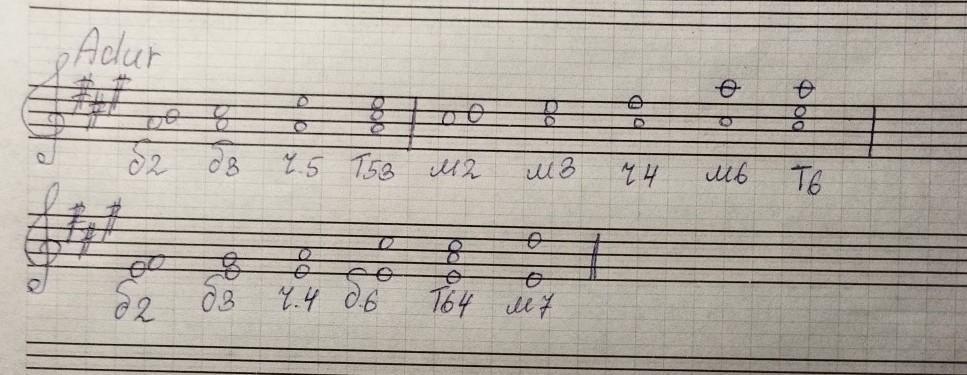 Adur
б2 б3 ч.5 Т53 м2 м3 ч4 м6 Т6
б2 б3 ч.4 б.6 Т64 м7